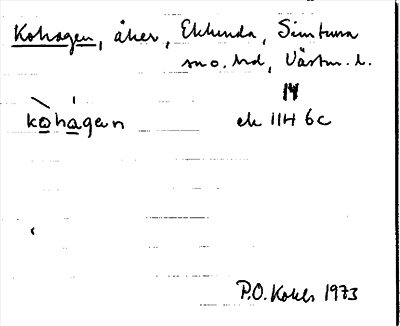 Kohagen, åker, Eklunda, Simtuna
sn o. hd, Västm. l.
14
kòhágen ek 11H 6c
P.O. Kohls 1973